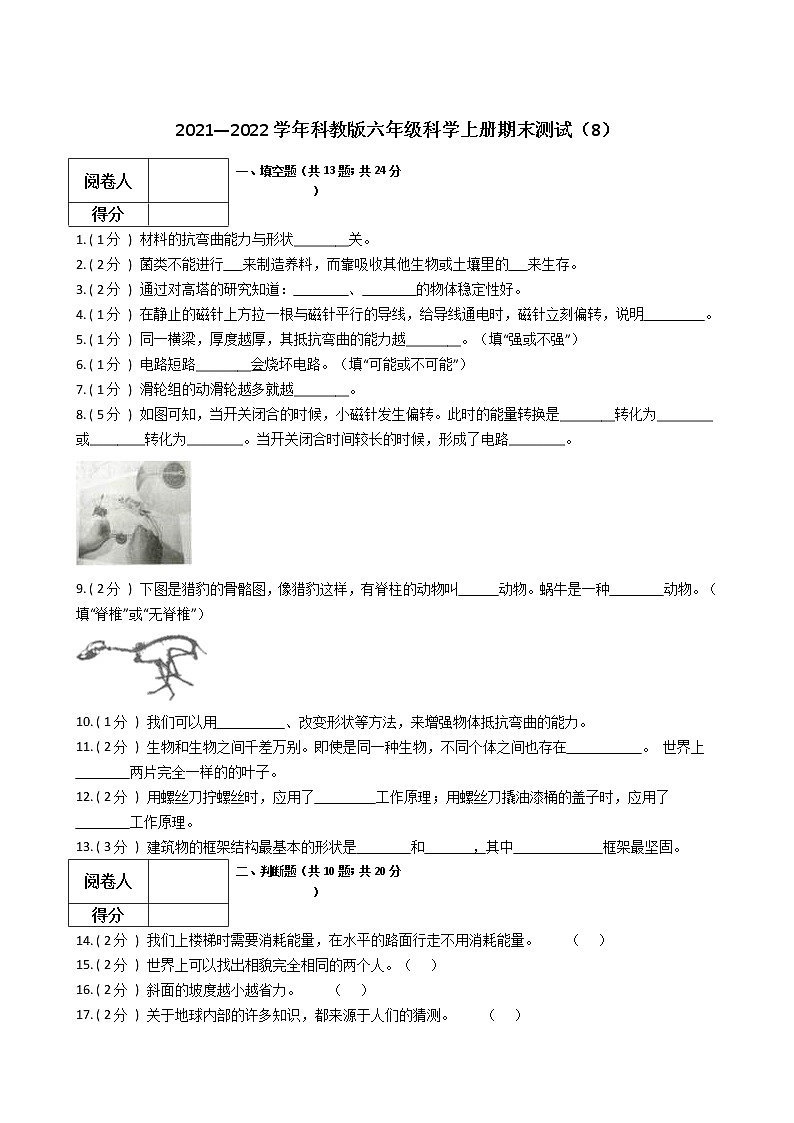 2021—2022学年科教版六年级科学上册期末测试（8）
阅卷人
得分
一、填空题（共13题；共24分
）
1.（1分 ） 材料的抗弯曲能力与形状________关。
2.（2分 ） 菌类不能进行___来制造养料，而靠吸收其他生物或土壤里的___来生存。
3.（2分 ） 通过对高塔的研究知道：________、________的物体稳定性好。
4.（1分 ） 在静止的磁针上方拉一根与磁针平行的导线，给导线通电时，磁针立刻偏转，说明_________。
5.（1分 ） 同一横梁，厚度越厚，其抵抗弯曲的能力越________。（填“强或不强”）
6.（1分 ） 电路短路________会烧坏电路。（填“可能或不可能”）
7.（1分 ） 滑轮组的动滑轮越多就越________。
8.（5分 ） 如图可知，当开关闭合的时候，小磁针发生偏转。此时的能量转换是________转化为________
或________转化为________。当开关闭合时间较长的时候，形成了电路________。
9.（2分 ） 下图是猎豹的骨骼图，像猎豹这样，有脊柱的动物叫______动物。蜗牛是一种________动物。（
填“脊椎”或“无脊椎”）
10.（1分 ） 我们可以用__________、改变形状等方法，来增强物体抵抗弯曲的能力。
11.（2分 ） 生物和生物之间千差万别。即使是同一种生物，不同个体之间也存在___________。 世界上
________两片完全一样的的叶子。
12.（2分 ） 用螺丝刀拧螺丝时，应用了_________工作原理；用螺丝刀撬油漆桶的盖子时，应用了
________工作原理。
13.（3分 ） 建筑物的框架结构最基本的形状是________和_______，其中_____________框架最坚固。
阅卷人
得分
二、判断题（共10题；共20分
）
14.（2分 ） 我们上楼梯时需要消耗能量，在水平的路面行走不用消耗能量。 （ ）
15.（2分 ） 世界上可以找出相貌完全相同的两个人。（ ）
16.（2分 ） 斜面的坡度越小越省力。 （ ）
17.（2分 ） 关于地球内部的许多知识，都来源于人们的猜测。 （ ）